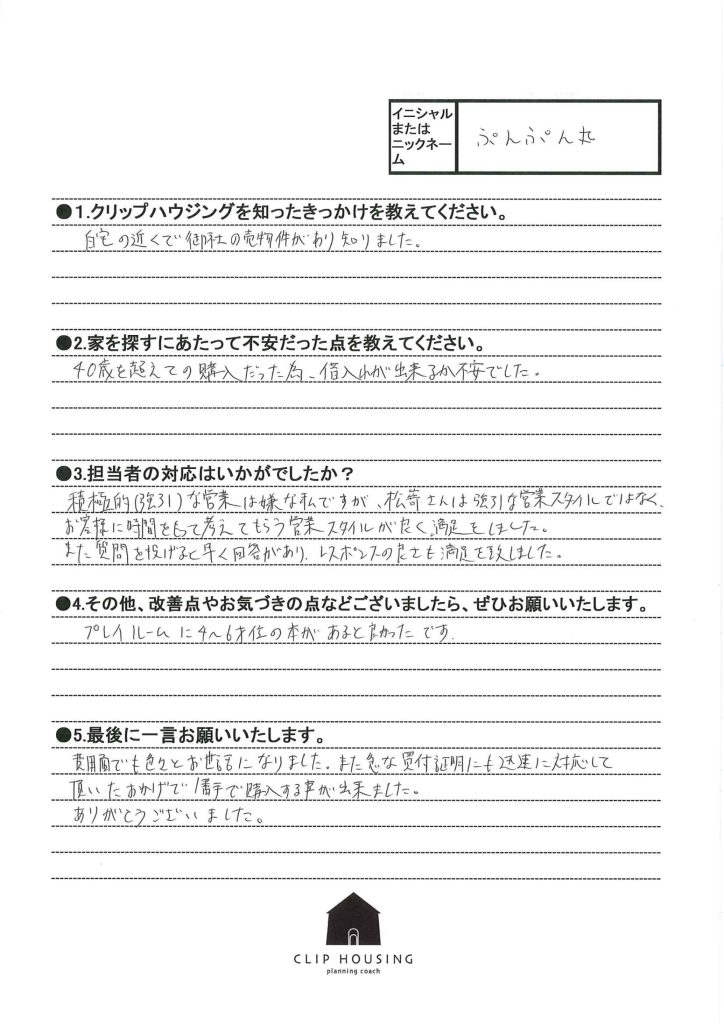 イニシャル
または
ニックネー
ム
ぷんぷん丸
●1.クリップハウジングを知ったきっかけを教えてください。
自宅の近くで御社の売物件があり知りました。
●2.家を探すにあたって不安だった点を教えてください。
40歳を超えての購入だった為、借入れが出来るか不安でした。
●3.担当者の対応はいかがでしたか？
積極的(強引)な営業は嫌な私ですが、松嵜さんは強引な営業スタイルではなく、
お客様に時間をもって考えてもらう営業スタイルが良く満足をしました。
また質問を投げると早く回答があり、レスポンスの良さも満足を致しました。
●4.その他、改善点やお気づきの点などございましたら、ぜひお願いいたします。
プレイルームに4〜6才位の本があると良かったです.
●5.最後に一言お願いいたします。
費用面でも色々とお世話になりました。また急な買付証明にも迅速に対応して
頂いたおかげで1番手で購入する事が出来ました。
ありがとうございました。
CLIP HOUSING
planning coach